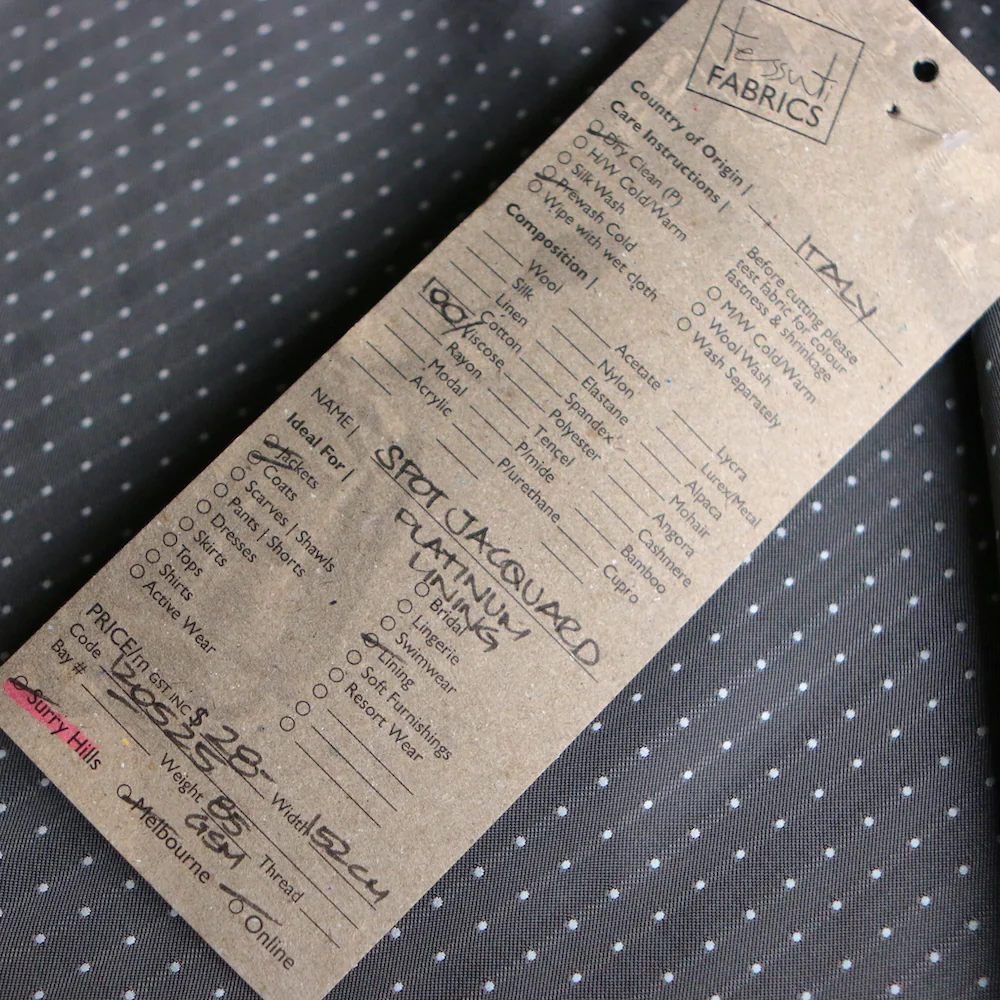 Tessuti
FABRICS
Country of Origin | ITALY
Care Instructions |
Dry Clean (P)
H/W Cold/Warm
Silk Wash
Prewash Cold
Wipe with wet cloth
Before cutting please
test fabric for colour
fastness & shrinkage
M/W Cold/Warm
Wool Wash
Wash Separately
Composition |
Wool
Silk
Linen
Cotton
100% Viscose
Rayon
Modal
Acrylic
Acetate
Nylon
Elastane
Spandex
Polyester
Tencel
P/mide
Plurethane
Lycra
Lurex/Metal
Alpaca
Mohair
Angora
Cashmere
Bamboo
Cupro
NAME | SPOT JACQUARD
PLATINUM
LINING
Ideal For |
Jackets
Coats
Scarves | Shawls
Pants | Shorts
Dresses
Skirts
Tops
Shirts
Active Wear
Bridal
Lingerie
Swimwear
Lining
Soft Furnishings
Resort Wear
PRICE/m GST INC $ 28-
Code 120525
Width 152CM
Bay #
Weight 85
GSM
Thread
Surry Hills
Melbourne
Online